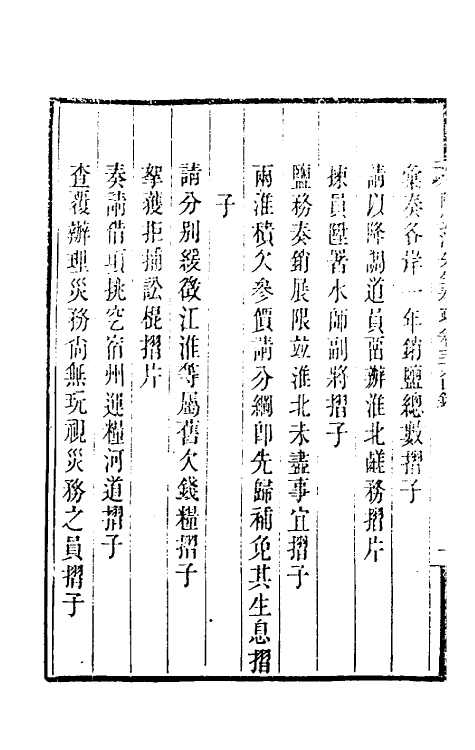 彙奏各岸一年銷鹽總數摺子
請以降調道員留辦淮北鹺務摺片
揀員陞署水師副將摺子
鹽務奏銷展限並淮北未盡事宜摺子
兩淮積欠參價請分綱卽先歸補免其生息摺
子
請分别緩徵江淮等屬舊欠錢糧摺子
拏獲拒捕訟棍摺片
奏請借項挑空宿州運糧河道摺子
查覆辦理災務尙無玩視災務之員摺子